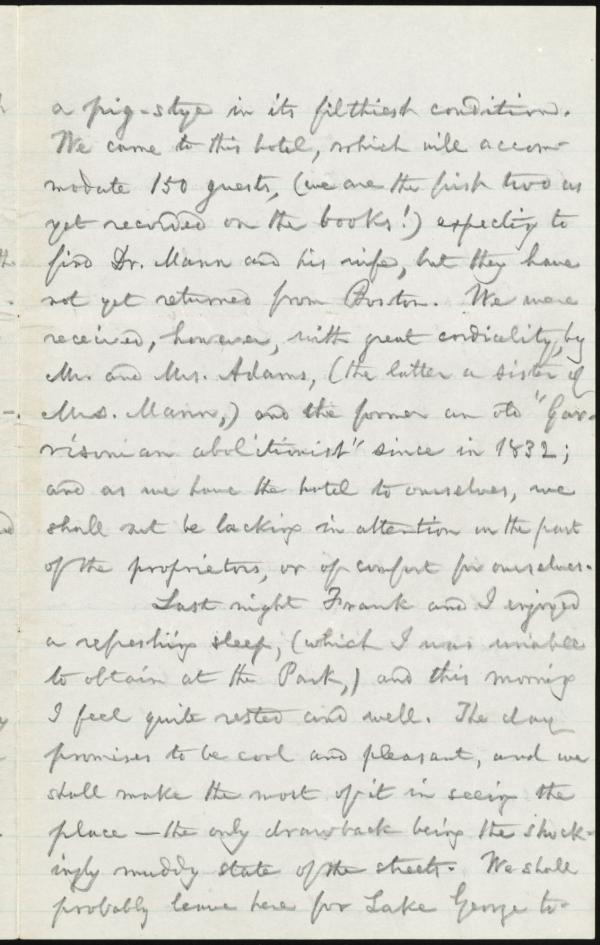 a pig-stye in its filthiest condition.
We came to this hotel, which will accom-
modate 150 guests, (we are the first two as
yet recorded on the books!) expecting to
find Dr. Mann and his wife, but they have
not yet returned from Boston. We were
received, however, with great cordiality, by
Mr. and Mrs. Adams, (the latter a sister of
Mrs. Mann,) and the former an old "Gar-
risonian abolitionist" since in 1832;
and as we have the hotel to ourselves, we
shall not be lacking in attention on the part
of the proprietors, or of comfort for ourselves.
Last night Frank and I enjoyed
a refreshing sleep, (which I was unable
to obtain at the Park,) and this morning
I feel quite rested and well. The day
promises to be cool and pleasant, and we
shall make the most of it in seeing the
place — the only drawback being the shock-
ingly muddy state of the streets. We shall
probably leave here for Lake George to-